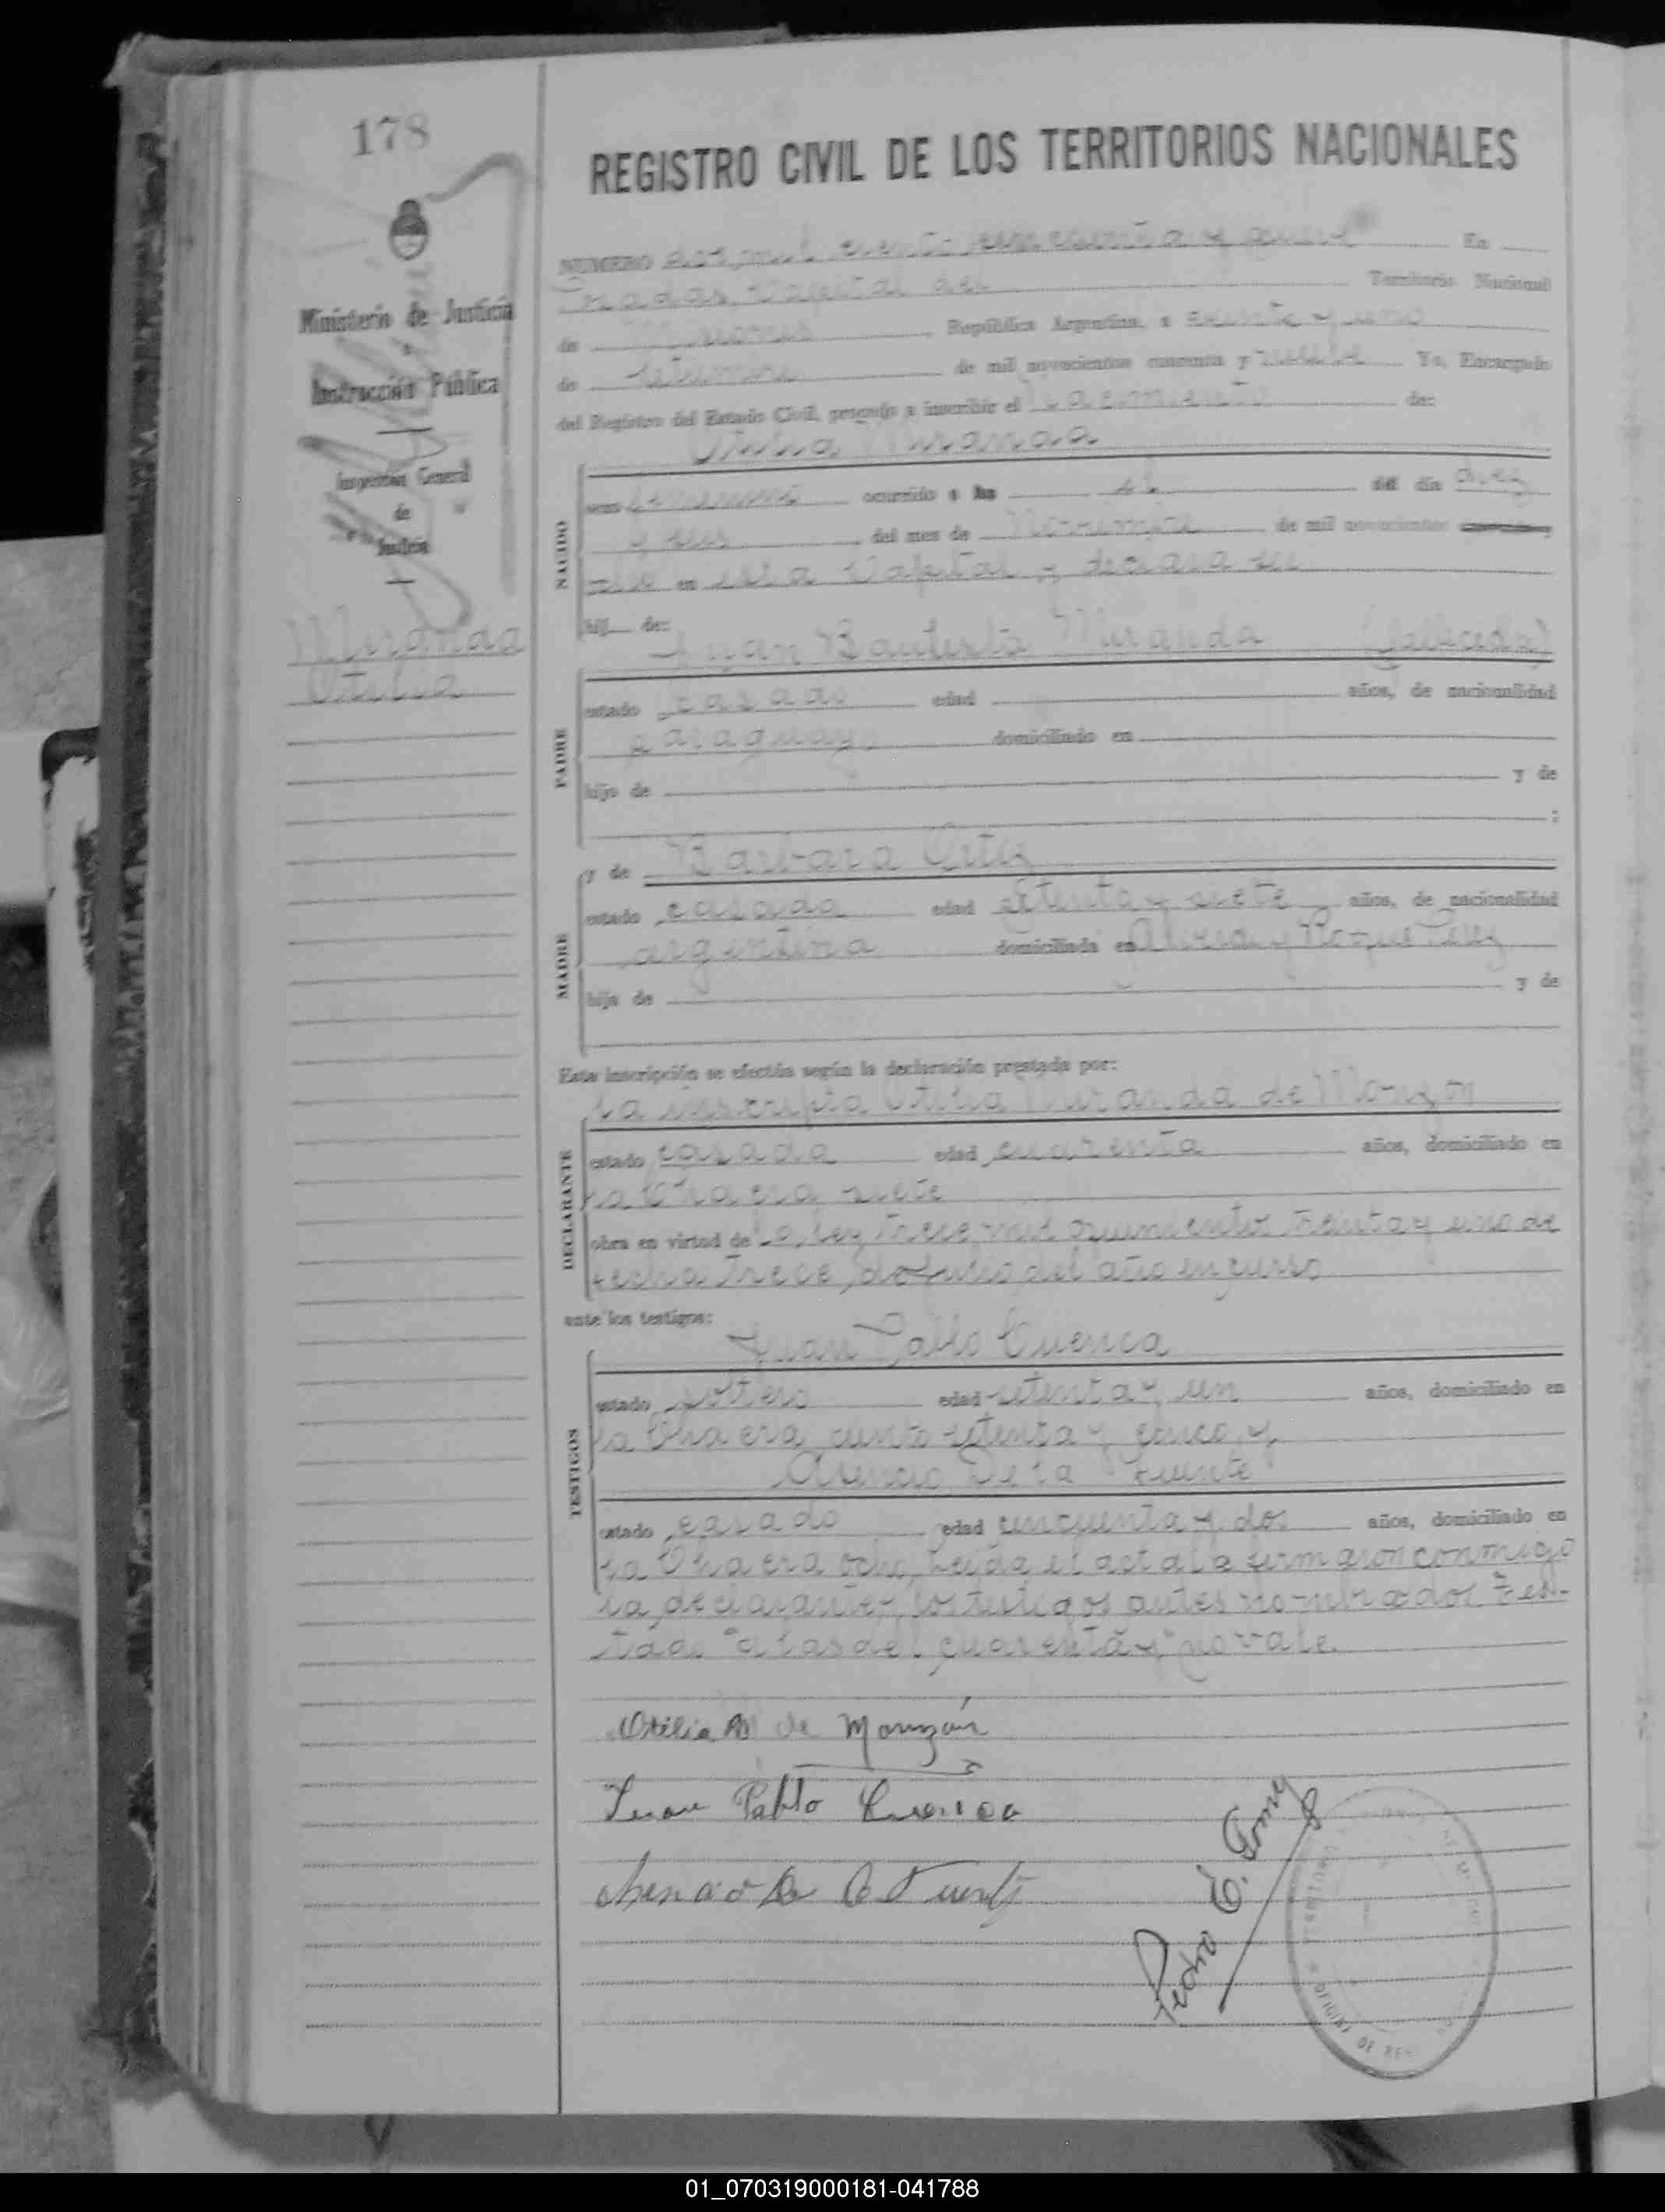 178
REGISTRO CIVIL DE LOS TERRITORIOS NACIONALES
Ministerio de Justicia
e
Instrucción Pública
Inspección General
de
Justicia
Miranda
Otilia
NUMERO dos mil ciento cincuenta y En
Posadas, Capital del Territorio Nacional
de Misiones, República Argentina, a treinta y uno
de de mil novecientos cuarenta y Yo, Encargado
del Registro del Estado Civil, procedo a inscribir el nacimiento de:
Otilia Miranda
NACIDO
sexo femenino ocurrido a las del día diez
y seis del mes de Noviembre de mil novecientos cuarenta y
en esta Capital y declara ser
hij de:
Juan Bautista Miranda (fallecido)
PADRE
estado casado edad años, de nacionalidad
paraguayo domiciliado en
hijo de y de
;
y de Barbara Ortiz
MADRE
estado casada edad setenta y siete años, de nacionalidad
argentina domiciliada en y Roque Perez
hija de y de
Esta inscripción se efectúa según la declaración prestada por:
la inscripta Otilia Miranda de Monzon
DECLARANTE
estado casada edad cuarenta años, domiciliado en
la Chacra siete
obra en virtud de la ley trece mil quinientos treinta y uno de
fecha trece de Junio del año en curso
ante los testigos:
Juan Pablo Cuenca
TESTIGOS
estado soltero edad setenta y un años, domiciliado en
la Chacra ciento setenta y cinco, y
Asencio De la Fuente
estado casado edad cincuenta y dos años, domiciliado en
la Chacra ocho, Leida el acta la firmaron conmigo
la declarante y los testigos antes nombrados. Tes-
tado "a las del cuarenta y" no vale.
Otilia M de Monzón
Juan Pablo Cuenca
Asencio De la Fuente
Pedro E. Gomez
OFICINA DE
01_070319000181-041788